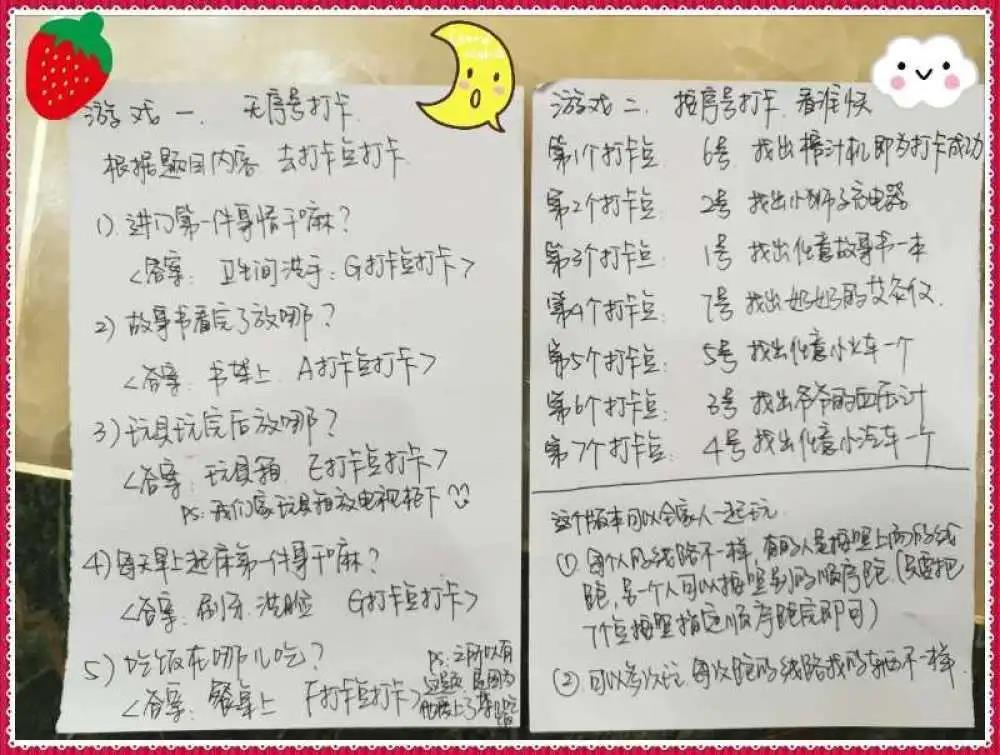 游戏一. 无序号打卡
根据题目内容 去打卡点打卡
1). 进门第一件事情干嘛?
<答案: 卫生间洗手: G打卡点打卡>
2) 故事书看完了放哪?
<答案: 书架上. A打卡点打卡>
3) 玩具玩完后放哪?
<答案: 玩具箱. E打卡点打卡>
PS: 我们家玩具箱放电视柜下
4) 每天早上起床第一件事干嘛?
<答案: 刷牙.洗脸 G打卡点打卡>
5) 吃饭在哪儿吃?
<答案: 餐桌上 F打卡点打卡>
PS: 之所以有
这题,是因为
游戏二. 按序号打卡. 看谁快
第1个打卡点 6号 找出榨汁机即为打卡成功
第2个打卡点: 2号 找出小狮子充电器
第3个打卡点: 1号 找出任意故事书一本
第4个打卡点: 7号 找出奶奶的艾灸仪.
第5个打卡点: 5号 找出任意小火车一个
第6个打卡点: 3号 找出爷爷的血压计
第7个打卡点: 4号 找出任意小汽车一个
这个版本可以全家人一起玩
① 每个人的线路不一样, 有的人是按照上面的线
跑, 另一个人可以按照别的顺序跑. (只要把
7个点按照指定顺序跑完即可)
② 可以多次玩. 每次跑的线路找的东西不一样.